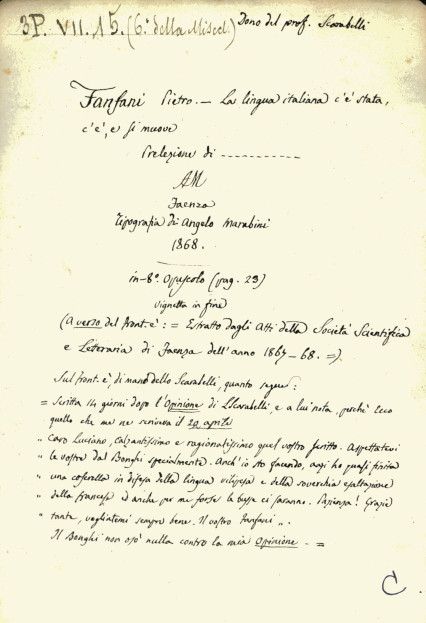 3P. VII. 15. (6.° della Miscel.) Dono del prof. Scarabelli
Fanfani Pietro. — La lingua italiana c'è stata,
c'è, e si muove
Prelezione di -----------
AM
Faenza
Tipografia di Angelo Marabini
1868.
in-8° Opuscolo (pag. 23)
vignetta in fine
(A verso del front. è : = Estratto dagli Atti della Società Scientifica
e Letteraria di Faenza dell'anno 1867-68. =)
Sul front. è, di mano dello Scarabelli, quanto segue :
= Scritta 14 giorni dopo l'Opinione di LScarabelli, e a lui nota, perchè Ecco
quello che me ne scriveva il 29 aprile
" Caro Luciano, Calzantissimo e ragionatissimo quel vostro scritto. Aspettatevi
" le vostre dal Bonghi specialmente. Anch'io sto facendo, anzi ho quasi finita
" una coserella in difesa della lingua vilipesa e della soverchia esaltazione
" della francese ed anche per me forse le busse ci saranno. Pazienza! Grazie
" tante, vogliatemi sempre bene. Il vostro Fanfani ".
Il Bonghi non osò nulla contro la mia Opinione. =
C